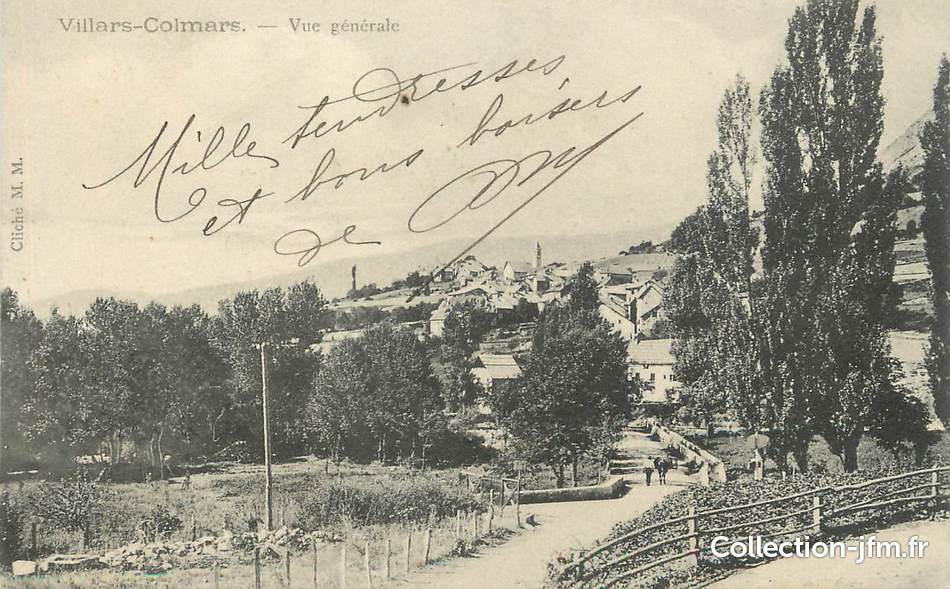 Villars-Colmars. — Vue générale
Mille tendresses
et bons baisers
de
Cliché M. M.
Collection-jfm.fr